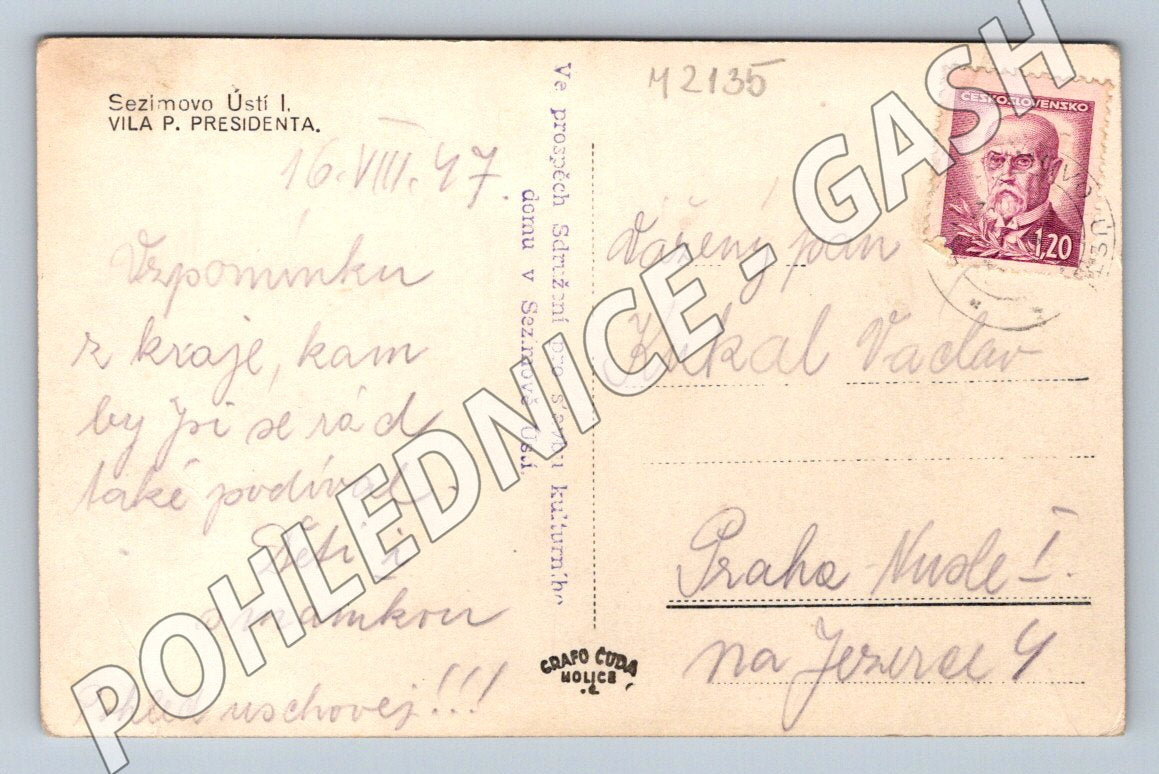 Sezimovo Ústí I.
VILA P. PRESIDENTA.
16. VIII. 47.
Vzpomínku
z kraje, kam
by jsi se rád
také podíval.
Děti
s mamkou
uschovej!!!
Ve prospěch Sdružení pro stavbu kulturního
domu v Sezimově Ústí.
GRAFO ČUDA
HOLICE
M2135
ČESKOSLOVENSKO
1,20
Vážený pan
Kukal Václav
Praha - Nusle I.
na Jezerce 4
POHLEDNICE - GASH